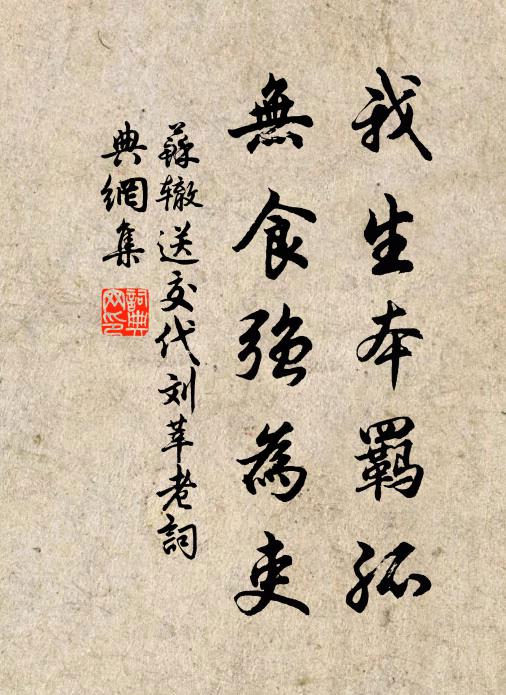 我生本羁孤
無食強為吏
蘇辙送交代刘莘老詞
典網集
詞典
网印